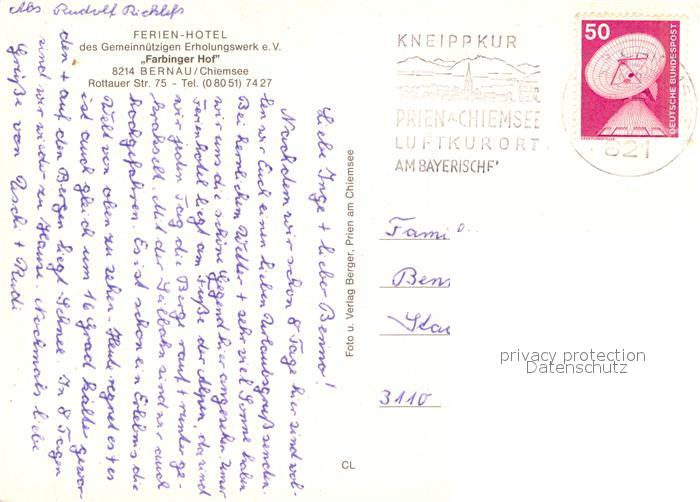 Abs. Rudolf
FERIEN-HOTEL
des Gemeinnützigen Erholungswerk e.V.
„Farbinger Hof"
8214 BERNAU/Chiemsee
Rottauer Str. 75 - Tel. (0 80 51) 74 27
Liebe Inge + lieber Benno!
Nachdem wir schon 8 Tage hier sind wol-
len wir Euch einen lieben Urlaubsgruß senden.
Bei herrlichem Wetter + sehr viel Sonne haben
wir uns die schöne Gegend hier angesehen. Unser
Ferienhotel liegt am Fuße der Alpen, da sind
wir jeden Tag die Berge rauf + runter ge-
krakselt. Mit der Seilbahn sind wir auch
hochgefahren. Es ist schon ein Erlebnis die
Welt von oben zu sehen. Heute regnet es + es
ist auch gleich um 16 Grad kälter gewor-
den + auf den Bergen liegt Schnee. In 8 Tagen
sind wir wieder zu Hause. Nochmals liebe
Grüße von Uschi + Rudi
Foto u. Verlag Berger, Prien am Chiemsee
CL
KNEIPPKUR
PRIEN A CHIEMSEE
LUFTKURORT
AM BAYERISCHE
821
50
DEUTSCHE BUNDESPOST
Fami
Ben
3110
privacy protection
Datenschutz